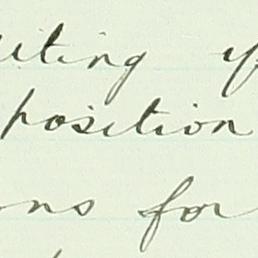 iting y
position
ns for